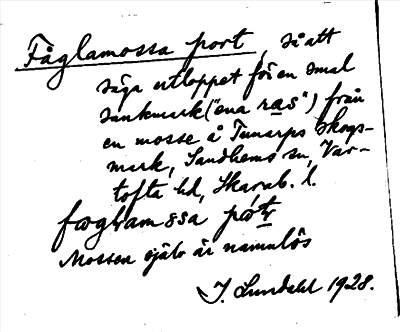 Fåglamossa port, så att
säga utloppet för en smal
sankmark ("ena ras") från
en mosse å Tunarps skogs-
mark, Sandhems sn, Var-
tofta hd, Skarab. l.
Mossen själv är namnlös
J. Lundahl 1928.